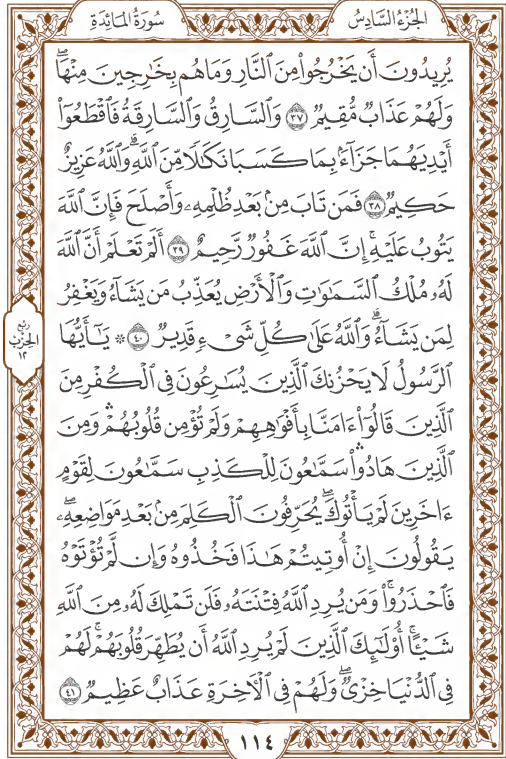 الجزء السادس
سورة المائدة
يُرِيدُونَ أَن يَخْرُجُوا۟ مِنَ ٱلنَّارِ وَمَا هُم بِخَـٰرِجِينَ مِنْهَا ۖ
وَلَهُمْ عَذَابٌ مُّقِيمٌ ٣٧ وَٱلسَّارِقُ وَٱلسَّارِقَةُ فَٱقْطَعُوٓا۟
أَيْدِيَهُمَا جَزَآءًۢ بِمَا كَسَبَا نَكَـٰلًا مِّنَ ٱللَّهِ ۗ وَٱللَّهُ عَزِيزٌ
حَكِيمٌ ٣٨ فَمَن تَابَ مِنۢ بَعْدِ ظُلْمِهِۦ وَأَصْلَحَ فَإِنَّ ٱللَّهَ
يَتُوبُ عَلَيْهِ ۗ إِنَّ ٱللَّهَ غَفُورٌ رَّحِيمٌ ٣٩ أَلَمْ تَعْلَمْ أَنَّ ٱللَّهَ
لَهُۥ مُلْكُ ٱلسَّمَـٰوَٰتِ وَٱلْأَرْضِ يُعَذِّبُ مَن يَشَآءُ وَيَغْفِرُ
لِمَن يَشَآءُ ۗ وَٱللَّهُ عَلَىٰ كُلِّ شَىْءٍ قَدِيرٌ ٤٠ ۞ يَـٰٓأَيُّهَا
ٱلرَّسُولُ لَا يَحْزُنكَ ٱلَّذِينَ يُسَـٰرِعُونَ فِى ٱلْكُفْرِ مِنَ
ٱلَّذِينَ قَالُوٓا۟ ءَامَنَّا بِأَفْوَٰهِهِمْ وَلَمْ تُؤْمِن قُلُوبُهُمْ ۛ وَمِنَ
ٱلَّذِينَ هَادُوا۟ ۛ سَمَّـٰعُونَ لِلْكَذِبِ سَمَّـٰعُونَ لِقَوْمٍ
ءَاخَرِينَ لَمْ يَأْتُوكَ ۖ يُحَرِّفُونَ ٱلْكَلِمَ مِنۢ بَعْدِ مَوَاضِعِهِۦ ۖ
يَقُولُونَ إِنْ أُوتِيتُمْ هَـٰذَا فَخُذُوهُ وَإِن لَّمْ تُؤْتَوْهُ
فَٱحْذَرُوا۟ ۚ وَمَن يُرِدِ ٱللَّهُ فِتْنَتَهُۥ فَلَن تَمْلِكَ لَهُۥ مِنَ ٱللَّهِ
شَيْـًٔا ۚ أُو۟لَـٰٓئِكَ ٱلَّذِينَ لَمْ يُرِدِ ٱللَّهُ أَن يُطَهِّرَ قُلُوبَهُمْ ۚ لَهُمْ
فِى ٱلدُّنْيَا خِزْىٌ ۖ وَلَهُمْ فِى ٱلْـَٔاخِرَةِ عَذَابٌ عَظِيمٌ ٤١
ربع
الحزب
١٢
١١٤